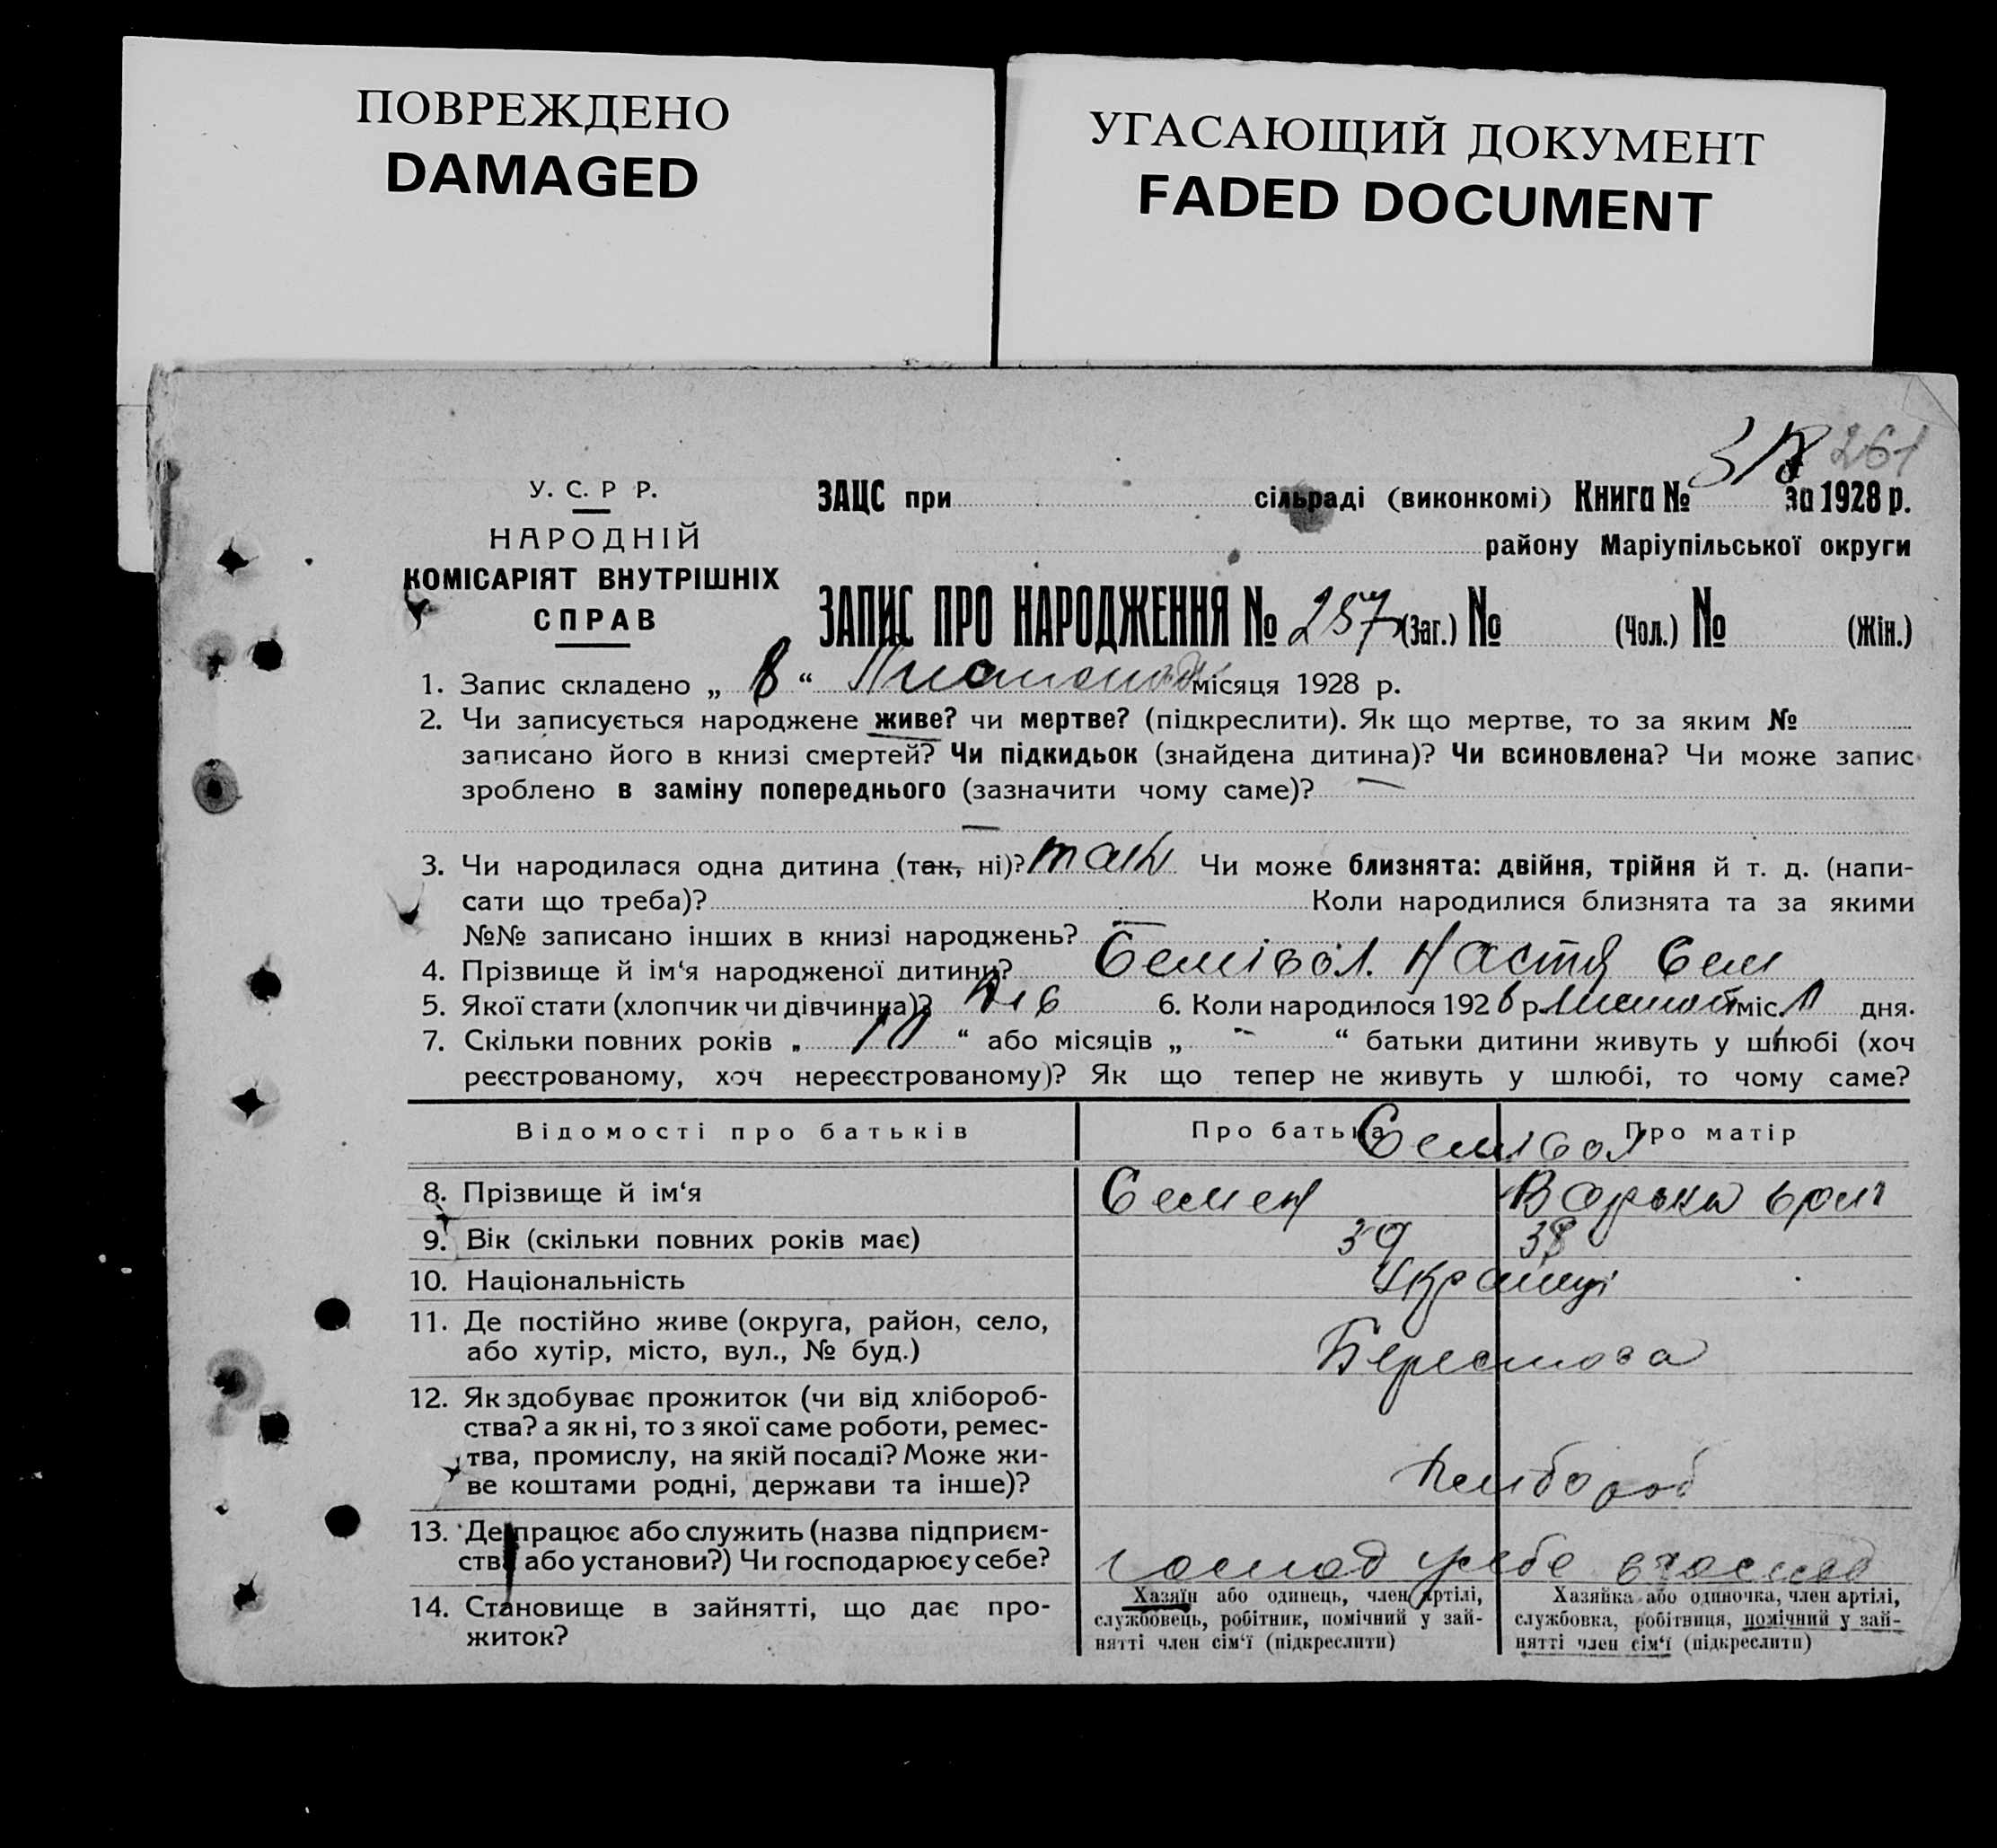 ПОВРЕЖДЕНО
DAMAGED
УГАСАЮЩИЙ ДОКУМЕНТ
FADED DOCUMENT
261
У. С. Р Р.
НАРОДНІЙ
КОМІСАРІЯТ ВНУТРІШНІХ
СПРАВ
ЗАЦС при сільраді (виконкомі) Книга № за 1928 р.
району Маріупільської округи
ЗАПИС ПРО НАРОДЖЕННЯ № 257 (Заг.) № (Чол.) № (Жін.)
1. Запис складено „ 8 “ місяця 1928 р.
2. Чи записується народжене живе? чи мертве? (підкреслити). Як що мертве, то за яким №
записано його в книзі смертей? Чи підкидьок (знайдена дитина)? Чи всиновлена? Чи може запис
зроблено в заміну попереднього (зазначити чому саме)? —
—
3. Чи народилася одна дитина (так, ні)? так Чи може близнята: двійня, трійня й т. д. (напи-
сати що треба)? Коли народилися близнята та за якими
№№ записано інших в книзі народжень? —
4. Прізвище й ім‘я народженої дитини? Семівол. Настя Сем
5. Якої стати (хлопчик чи дівчинка)? Дів 6. Коли народилося 192 8 р. міс. дня.
7. Скільки повних років „ “ або місяців „ - “ батьки дитини живуть у шлюбі (хоч
реєстрованому, хоч нереєстрованому)? Як що тепер не живуть у шлюбі, то чому саме?
Відомості про батьків Про батька Про матір
Семівол
8. Прізвище й ім‘я Семен Варька
9. Вік (скільки повних років має) 39 38
10. Національність Українці
11. Де постійно живе (округа, район, село,
або хутір, місто, вул., № буд.) Берестова
12. Як здобуває прожиток (чи від хлібороб-
ства? а як ні, то з якої саме роботи, ремес-
тва, промислу, на якій посаді? Може жи-
ве коштами родні, держави та інше)? Хлібороб
13. Де працює або служить (назва підприєм-
ства або установи?) Чи господарює у себе? господ у себе
14. Становище в зайнятті, що дає про-
житок?
Хазяїн або одинець, член артілі,
службовець, робітник, помічний у зай-
нятті член сім‘ї (підкреслити)
Хазяйка або одиночка, член артілі,
службовка, робітниця, помічний у зай-
нятті член сім‘ї (підкреслити)